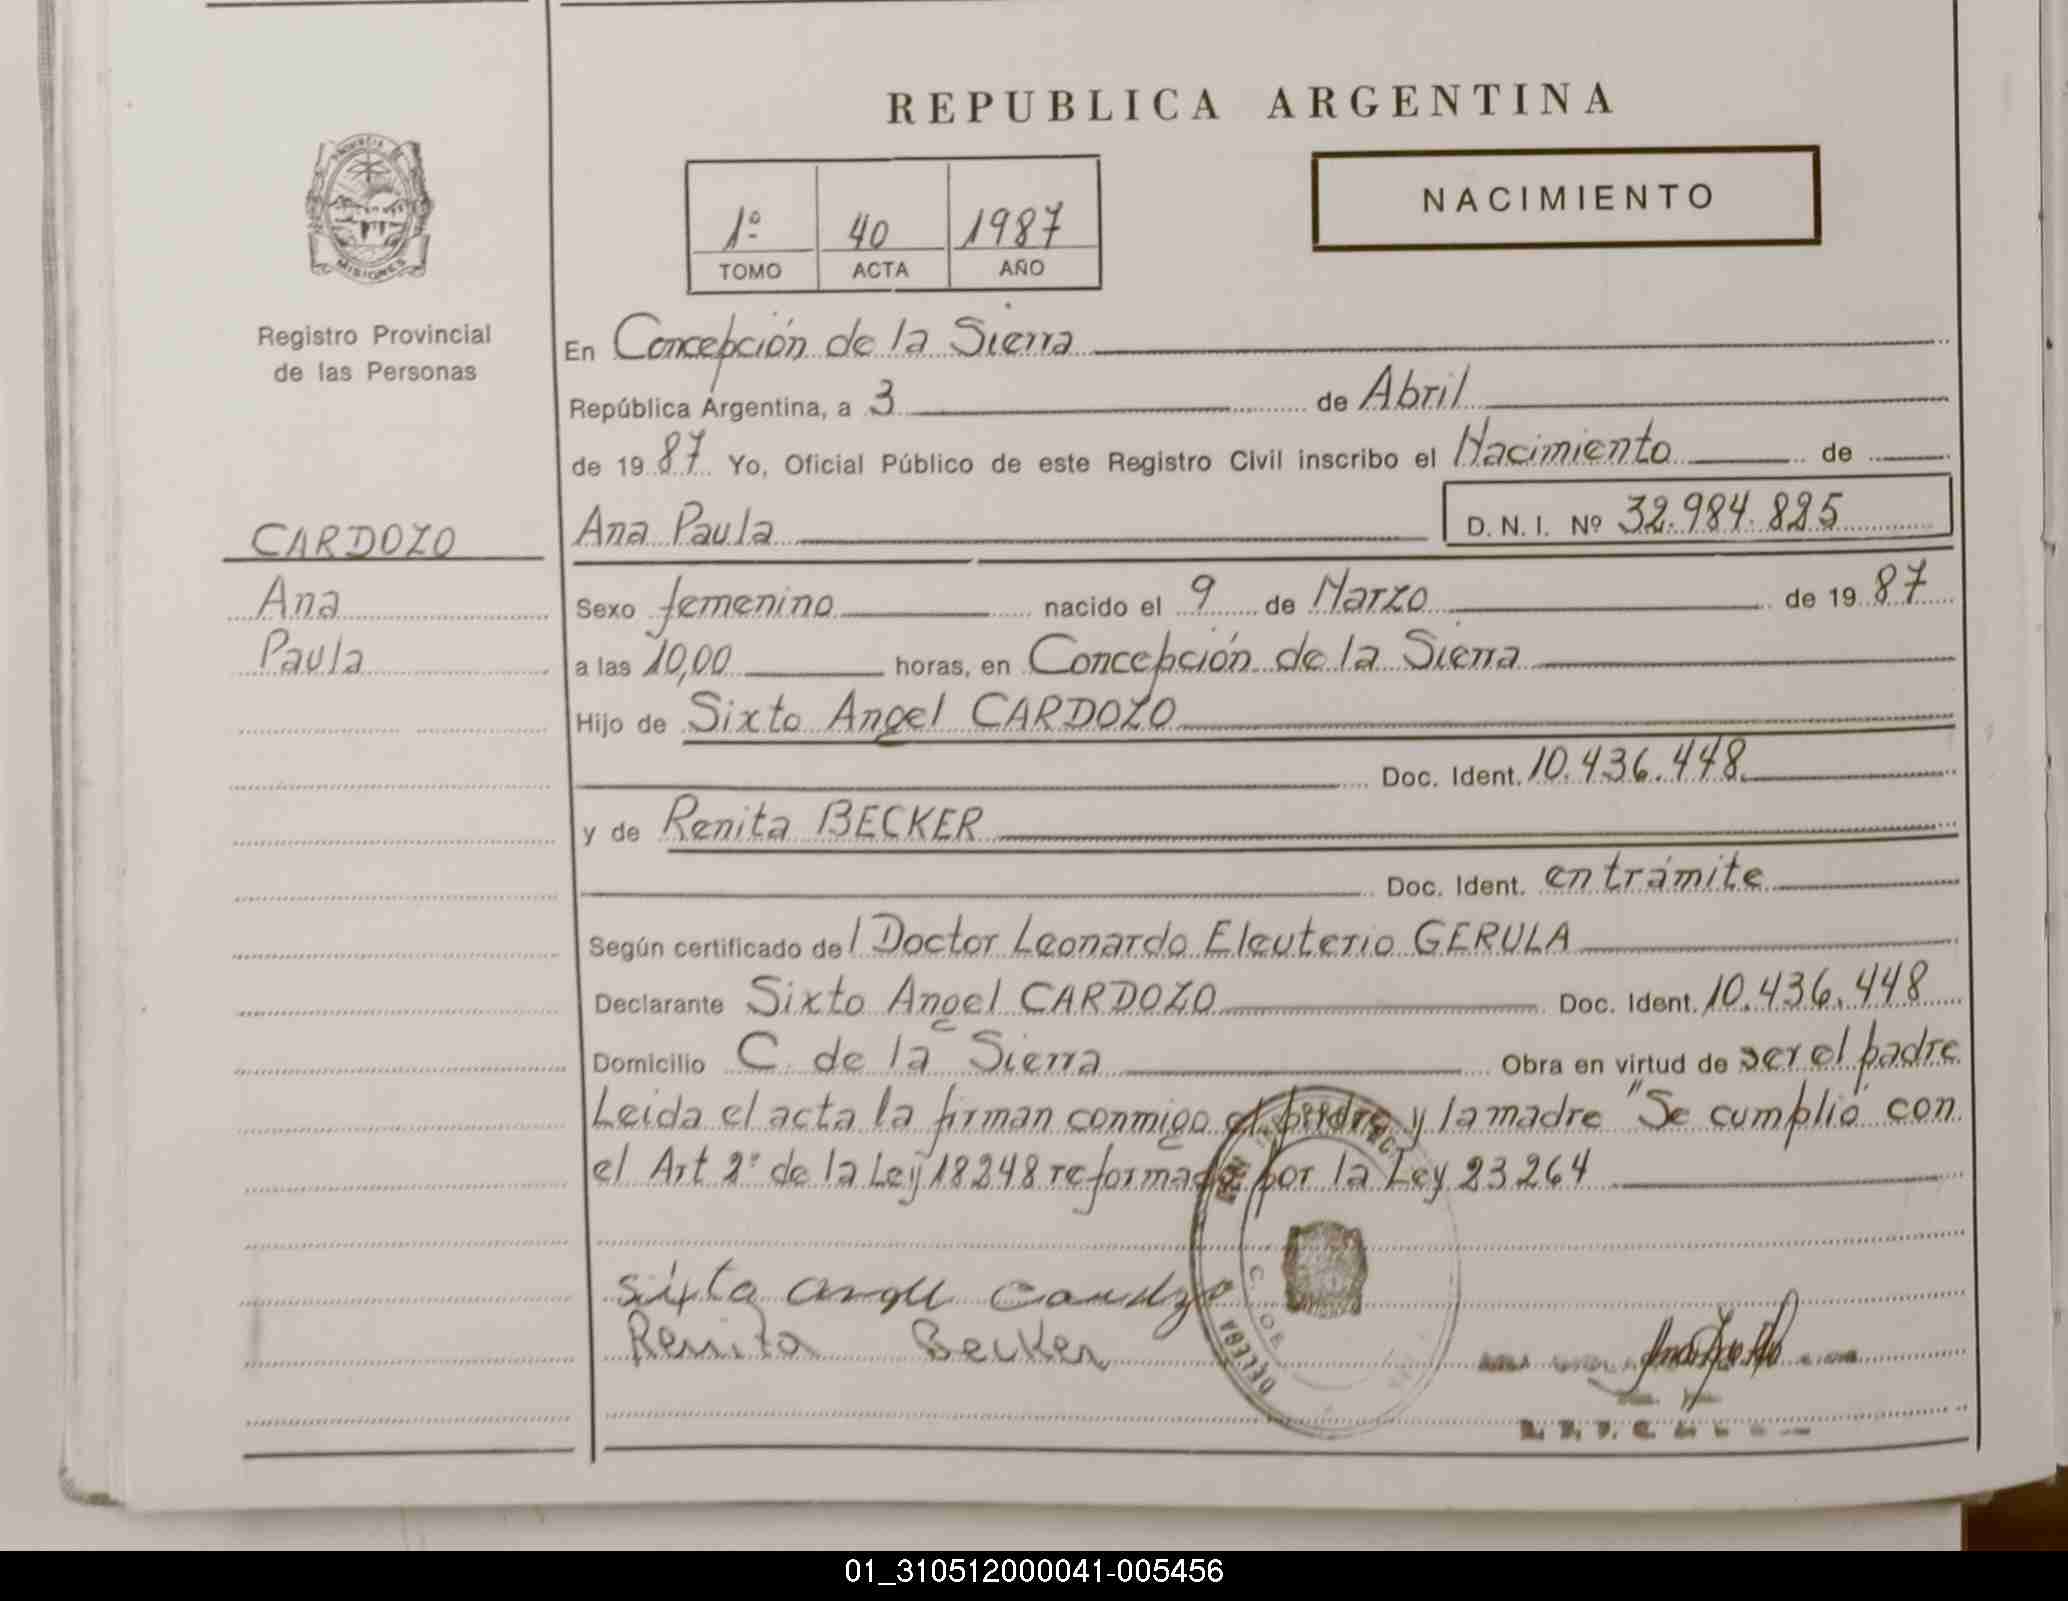 REPUBLICA ARGENTINA
PROVINCIA DE
MISIONES
Registro Provincial
de las Personas
1º 40 1987
TOMO ACTA AÑO
NACIMIENTO
En Concepción de la Sierra
República Argentina, a 3 de Abril
de 1987 Yo, Oficial Público de este Registro Civil inscribo el Nacimiento de
CARDOZO
Ana
Paula
Ana Paula D. N. I. Nº 32.984.825
Sexo femenino nacido el 9 de Marzo de 1987
a las 10,00 horas, en Concepción de la Sierra
Hijo de Sixto Angel CARDOZO
Doc. Ident. 10.436.448
y de Renita BECKER
Doc. Ident. en trámite
Según certificado del Doctor Leonardo Eleuterio GERULA
Declarante Sixto Angel CARDOZO Doc. Ident. 10.436.448
Domicilio C. de la Sierra Obra en virtud de ser el padre
Leida el acta la firman conmigo el padre y la madre "Se cumplió" con
el Art 2º de la Ley 18248 reformada por la Ley 23264
Sixto Angel Cardozo
Renita Becker
01_310512000041-005456